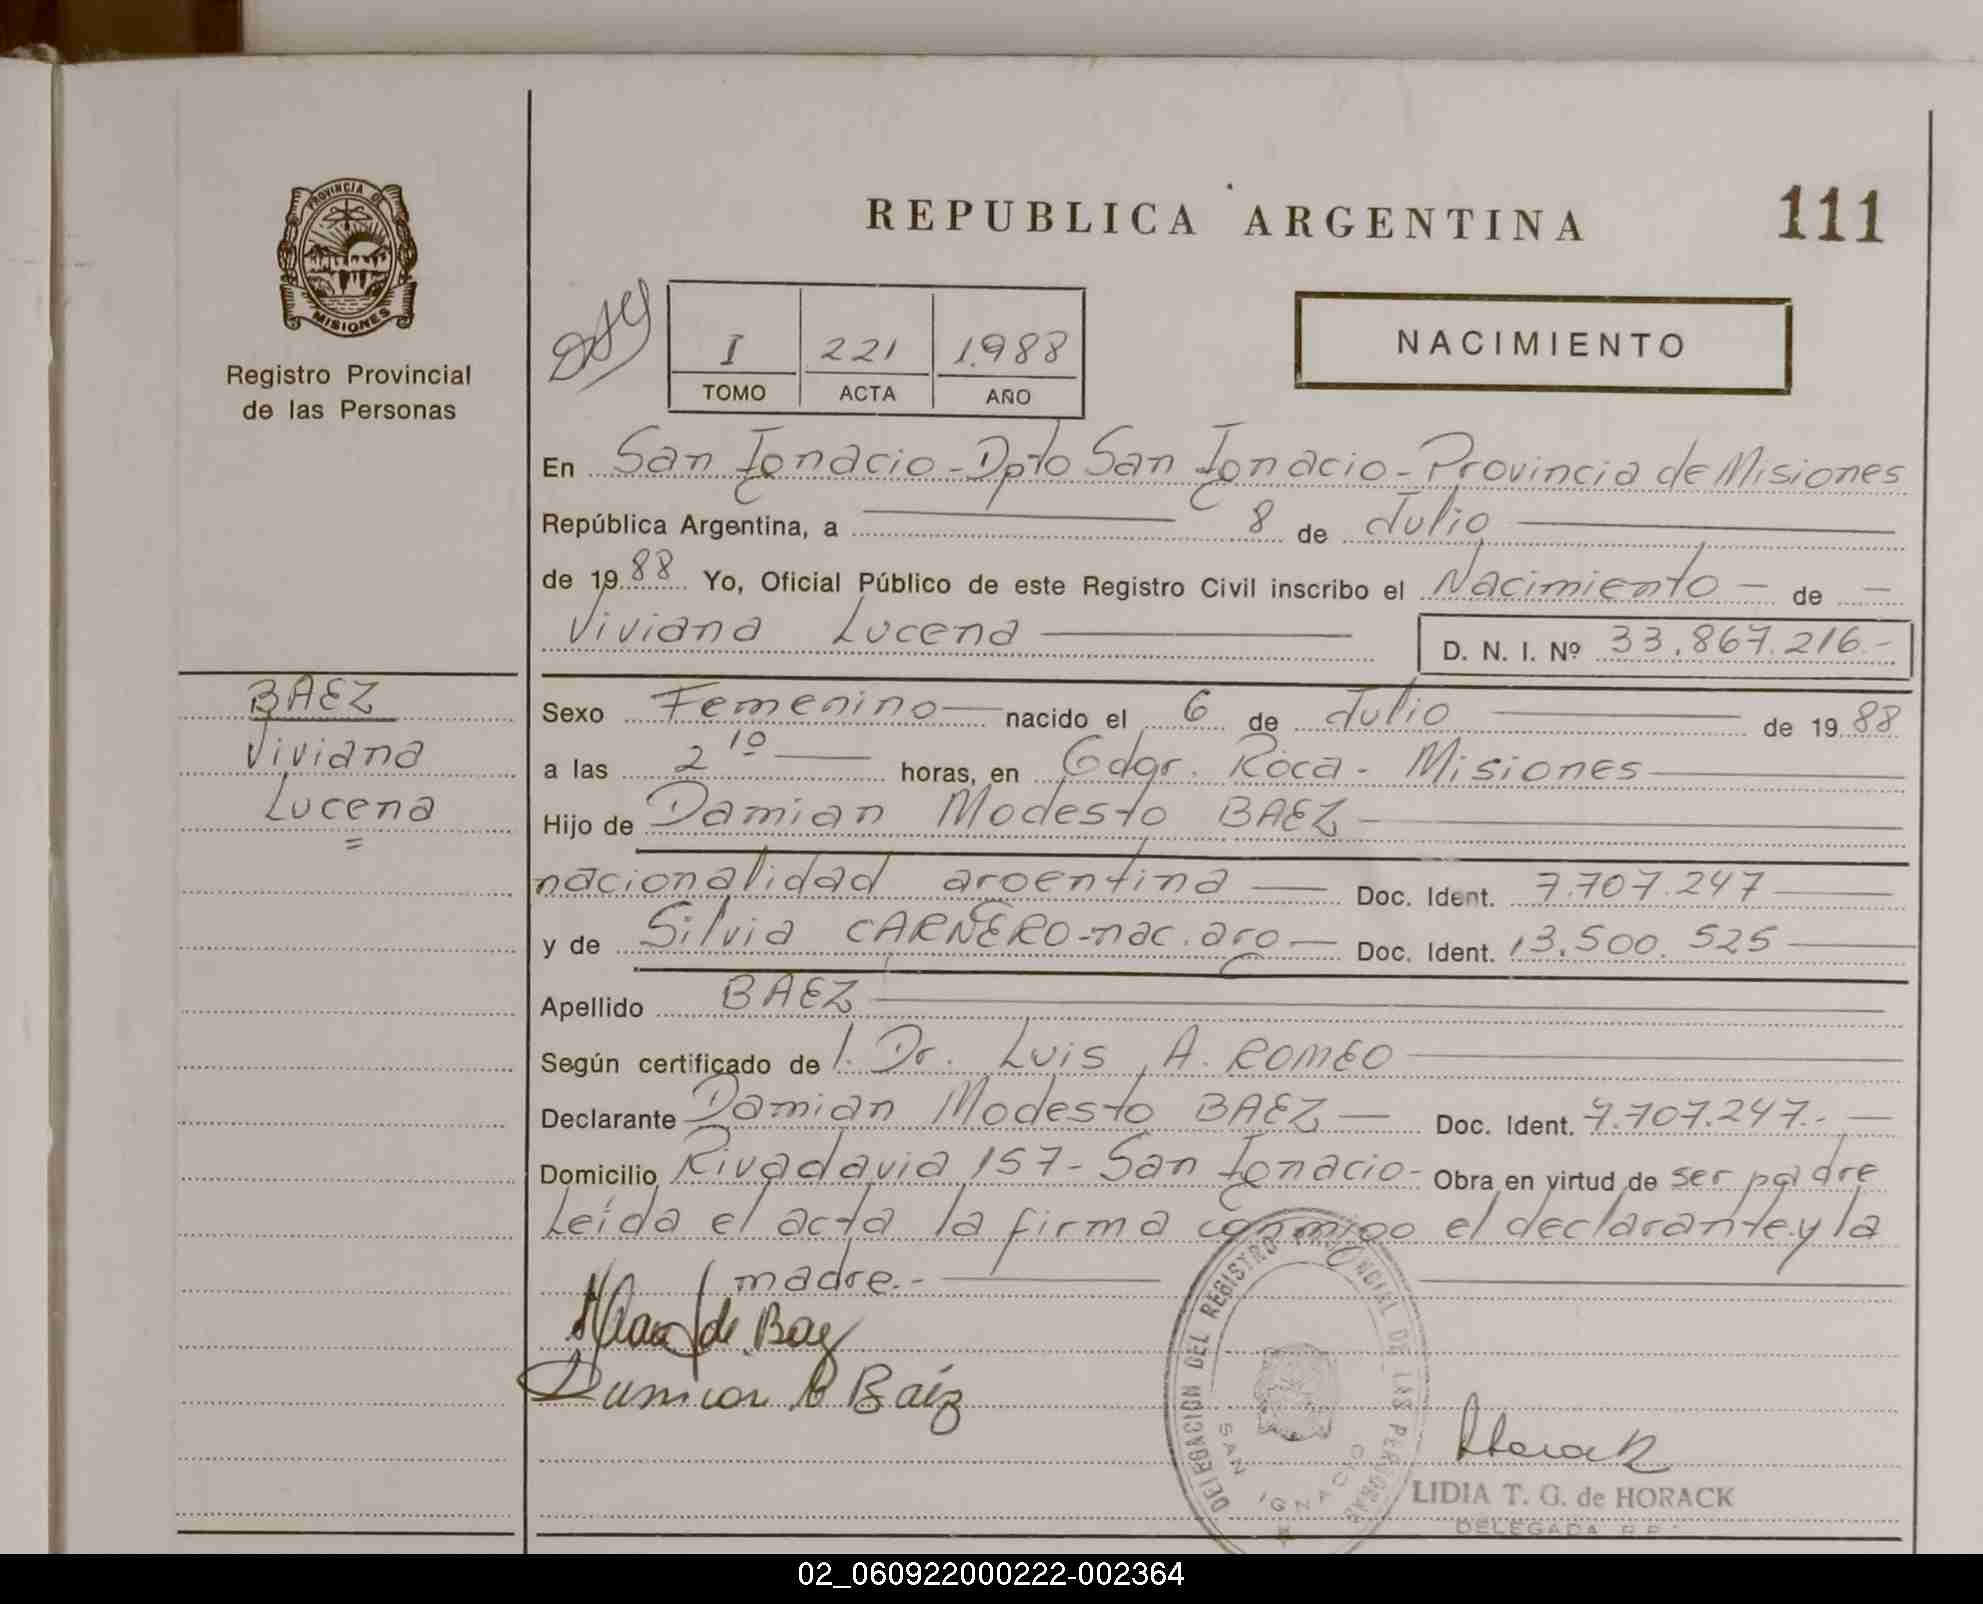 PROVINCIA DE
MISIONES
Registro Provincial
de las Personas
REPUBLICA ARGENTINA
111
I 221 1988
TOMO ACTA AÑO
NACIMIENTO
En San Ignacio - Dpto San Ignacio - Provincia de Misiones
República Argentina, a 8 de Julio
de 1988 Yo, Oficial Público de este Registro Civil inscribo el Nacimiento - de -
Viviana Lucena
D. N. I. Nº 33.867.216.-
BAEZ
Viviana
Lucena
Sexo Femenino nacido el 6 de Julio de 1988
a las 2 10 horas, en Gdor. Roca - Misiones
Hijo de Damian Modesto BAEZ
nacionalidad argentina Doc. Ident. 7.707.247
y de Silvia CARNERO - nac. arg Doc. Ident. 13.500.525
Apellido BAEZ
Según certificado de l. Dr. Luis A. ROMEO
Declarante Damian Modesto BAEZ Doc. Ident. 7.707.247.-
Domicilio Rivadavia 157 - San Ignacio - Obra en virtud de ser padre
Leída el acta la firma conmigo el declarante y la
madre.-
de Baez
Damian Baéz
DELEGACION DEL REGISTRO PROVINCIAL DE LAS PERSONAS
SAN IGNACIO
Horack
LIDIA T. G. de HORACK
DELEGADA
02_060922000222-002364